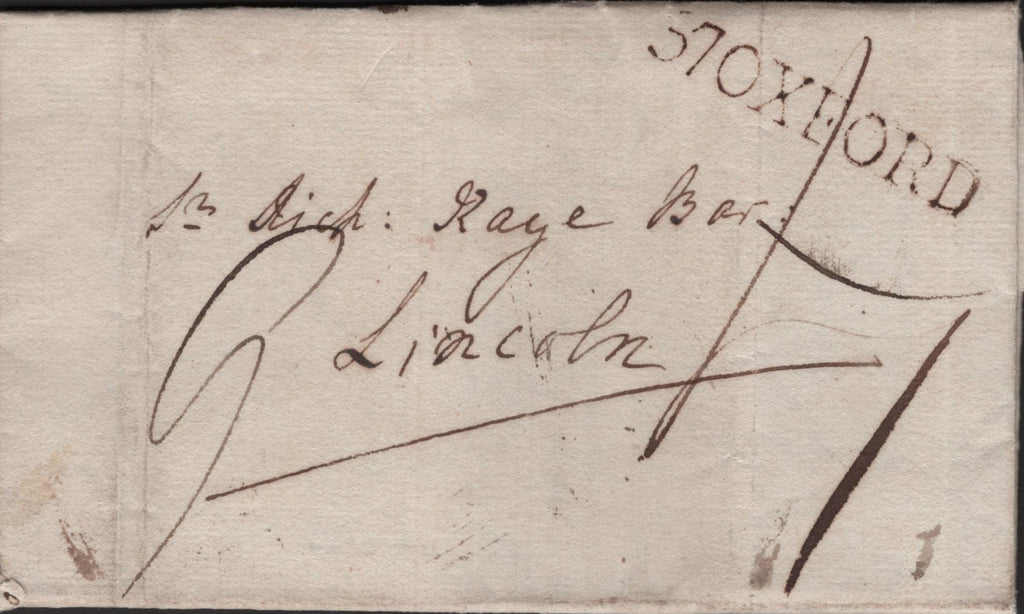 57 OXFORD
Sr Rich: Kaye Bar:
Lincoln
9